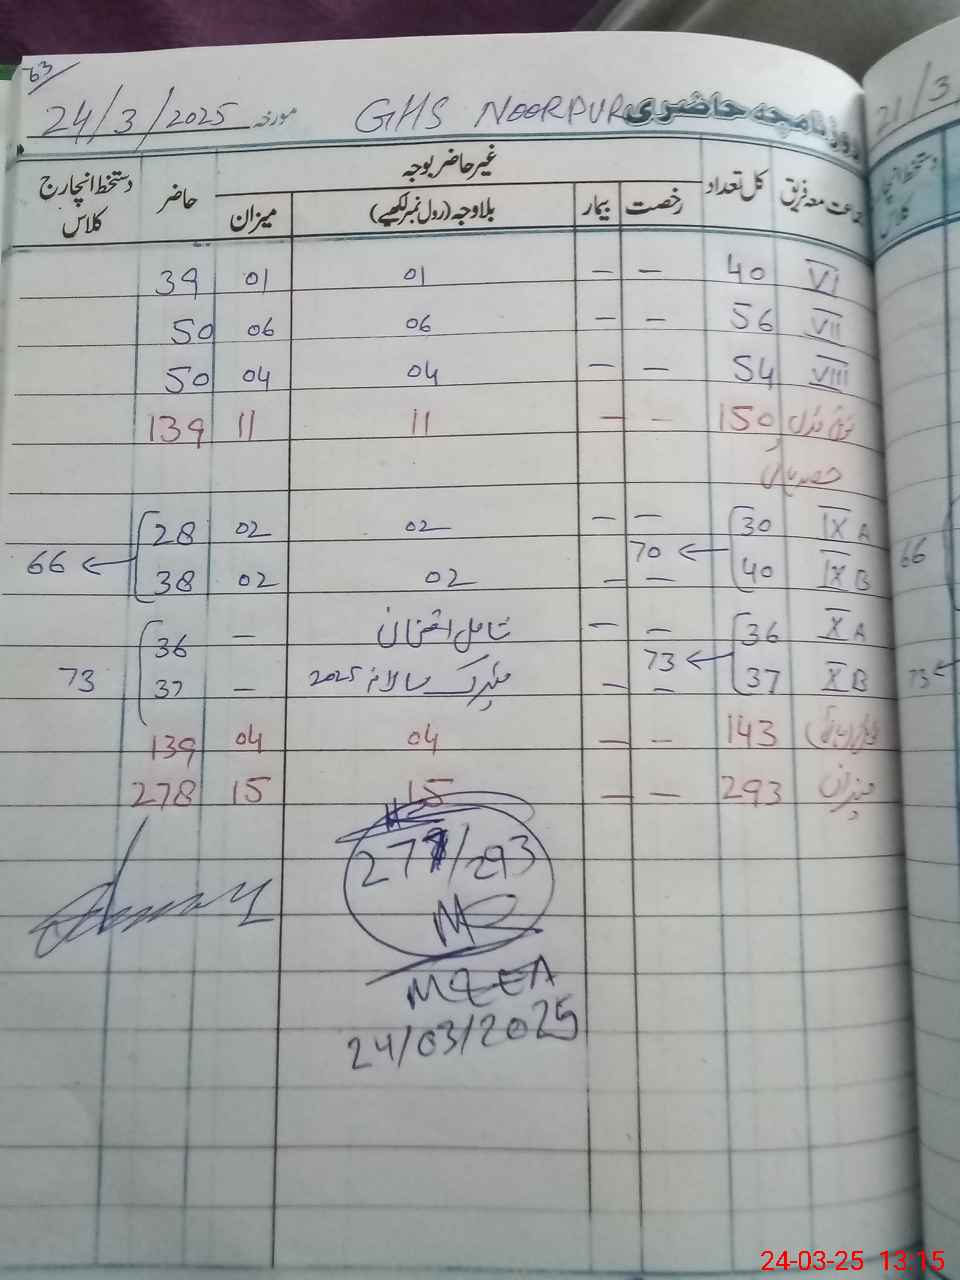 63
روزنامچہ حاضری GHS NOORPUR مورخہ 24/3/2025
جماعت معہ فریق کل تعداد غیر حاضر بوجہ حاضر دستخط انچارج کلاس
رخصت بیمار بلاوجہ (رول نمبر لکھیے) میزان
VI 40 — — 01 01 39
VII 56 — — 06 06 50
VIII 54 — — 04 04 50
150 — — 11 11 139
حصہ ہائی
IX A 30 — — 02 02 28
70 66
IX B 40 — — 02 02 38
X A 36 — — شامل امتحان — 36
73 73
X B 37 — — میٹرک سالانہ 2025 — 37
143 — — 04 04 139
میزان 293 — — 15 15 278
278/293
MEA
24/03/2025
21/3
دستخط انچارج
کلاس
66
73
24-03-25 13:15